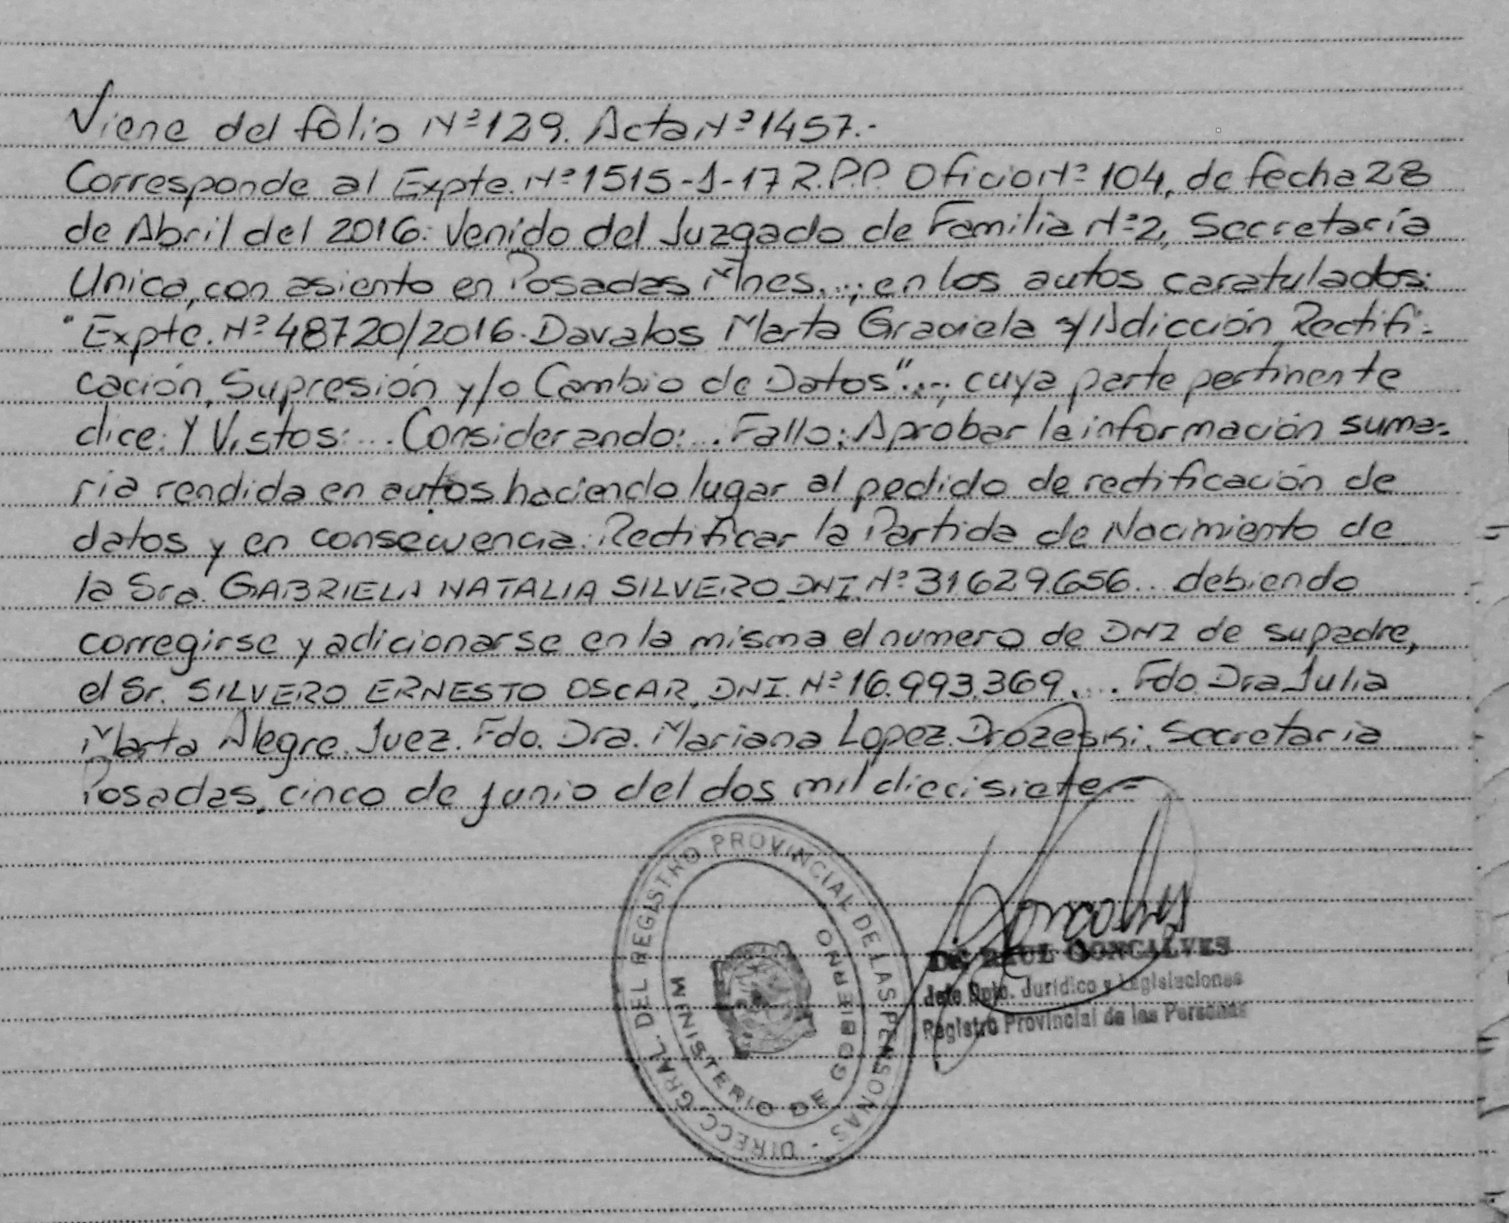 Viene del folio Nº 129. Acta Nº 1457.-
Corresponde al Expte. Nº 1515-J-17 R.P.P. Oficio Nº 104, de fecha 28
de Abril del 2016. Venido del Juzgado de Familia Nº 2, Secretaría
Unica, con asiento en Posadas Mnes..., en los autos caratulados:
"Expte. Nº 48720/2016. Davalos Marta Graciela s/ Adicción, Rectifi-
cación, Supresión y/o Cambio de Datos"..., cuya parte pertinente
dice: Y Vistos:... Considerando:... Fallo: Aprobar la información suma-
ria rendida en autos haciendo lugar al pedido de rectificación de
datos y en consecuencia: Rectificar la Partida de Nacimiento de
la Sra. GABRIELA NATALIA SILVERO DNI. Nº 31629.656... debiendo
corregirse y adicionarse en la misma el numero de DNI de su padre,
el Sr. SILVERO ERNESTO OSCAR, DNI. Nº 16.993.369.... Fdo. Dra Julia
Marta Alegre. Juez. Fdo. Dra. Mariana Lopez Drozeski. Secretaria
Posadas, cinco de junio del dos mil diecisiete-
DIRECC. GRAL. DEL REGISTRO PROVINCIAL DE LAS PERSONAS -
MINISTERIO DE GOBIERNO
Dr. RAUL GONCALVES
Jefe Dpto. Jurídico y Legislaciones
Registro Provincial de las Personas